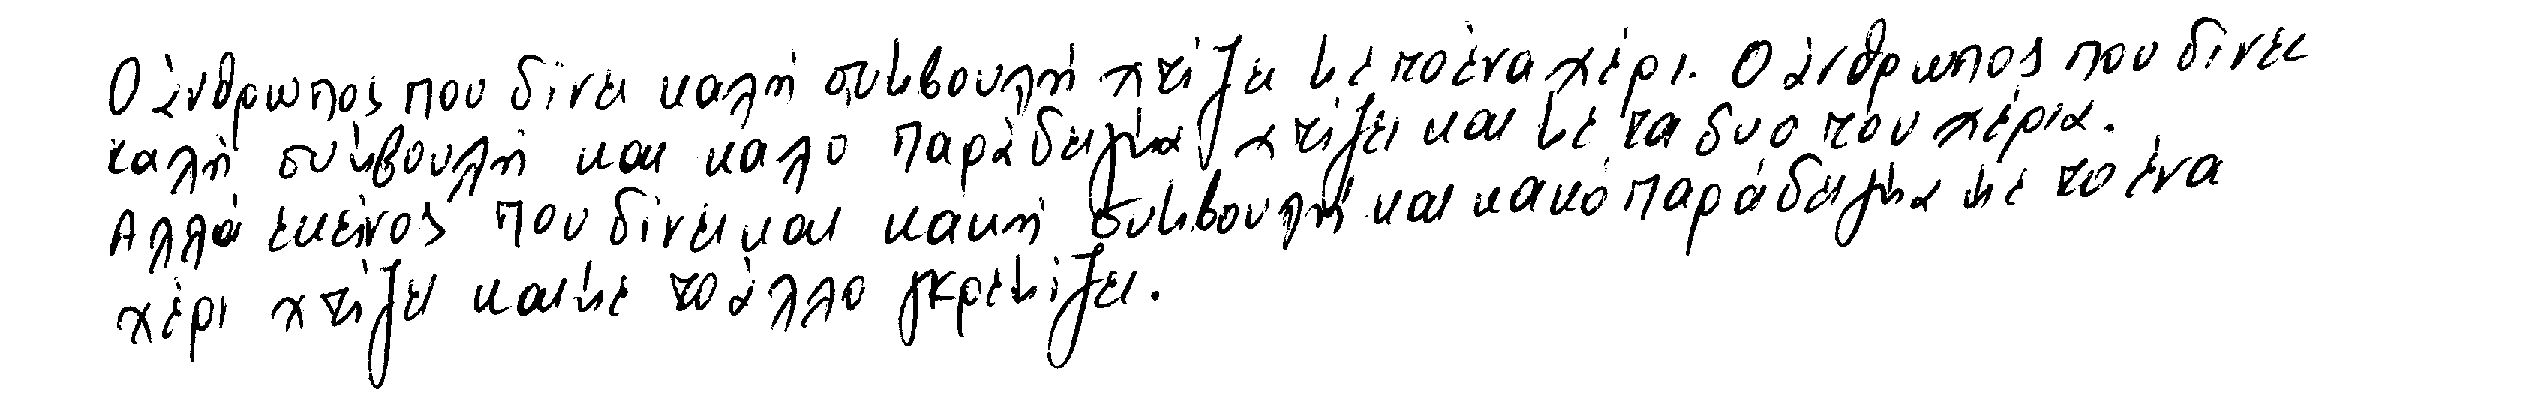 Ο άνθρωπος που δίνει καλή συμβουλή χτίζει με το ένα χέρι. Ο άνθρωπος που δίνει
καλή συμβουλή και καλό παράδειγμα χτίζει και με τα δυο του χέρια.
Αλλά εκείνος που δίνει και κακή συμβουλή και κακό παράδειγμα με το ένα
χέρι χτίζει και με το άλλο γκρεμίζει.